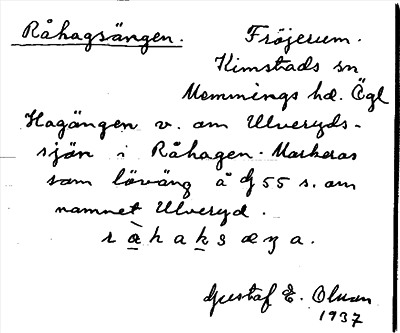 Råhagsängen. Fröjerum.
Kimstads sn
Memmings hd. Ögl
Hagängen v. om Ulveryds-
sjön i Råhagen. Markeras
som löväng å G 55 s. om
namnet Ulveryd.
Gustaf E. Olsson
1937